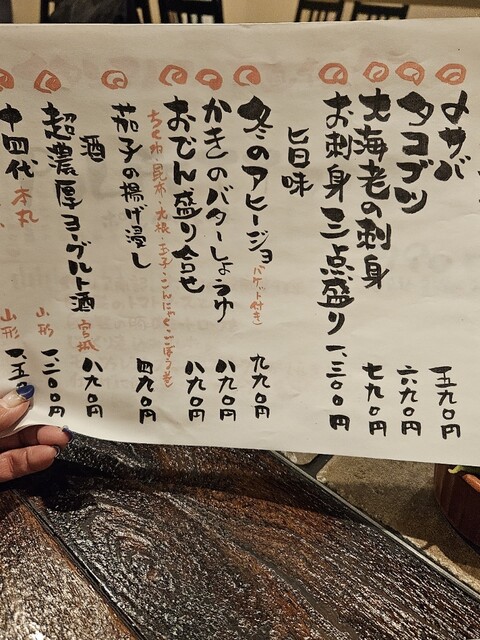 〆サバ 五九〇円
タコブツ 六九〇円
大海老の刺身 七九〇円
お刺身三点盛り 一、三〇〇円
旨味
冬のアヒージョ(バケット付き) 九九〇円
かきのバターしょうゆ 八九〇円
おでん盛り合せ 八九〇円
ちくわ・昆布・大根・玉子・こんにゃく・ごぼう巻
茄子の揚げ浸し 四九〇円
酒
超濃厚ヨーグルト酒 宮城 八九〇円
山形 一、二〇〇円
十四代 本丸 山形 一、五